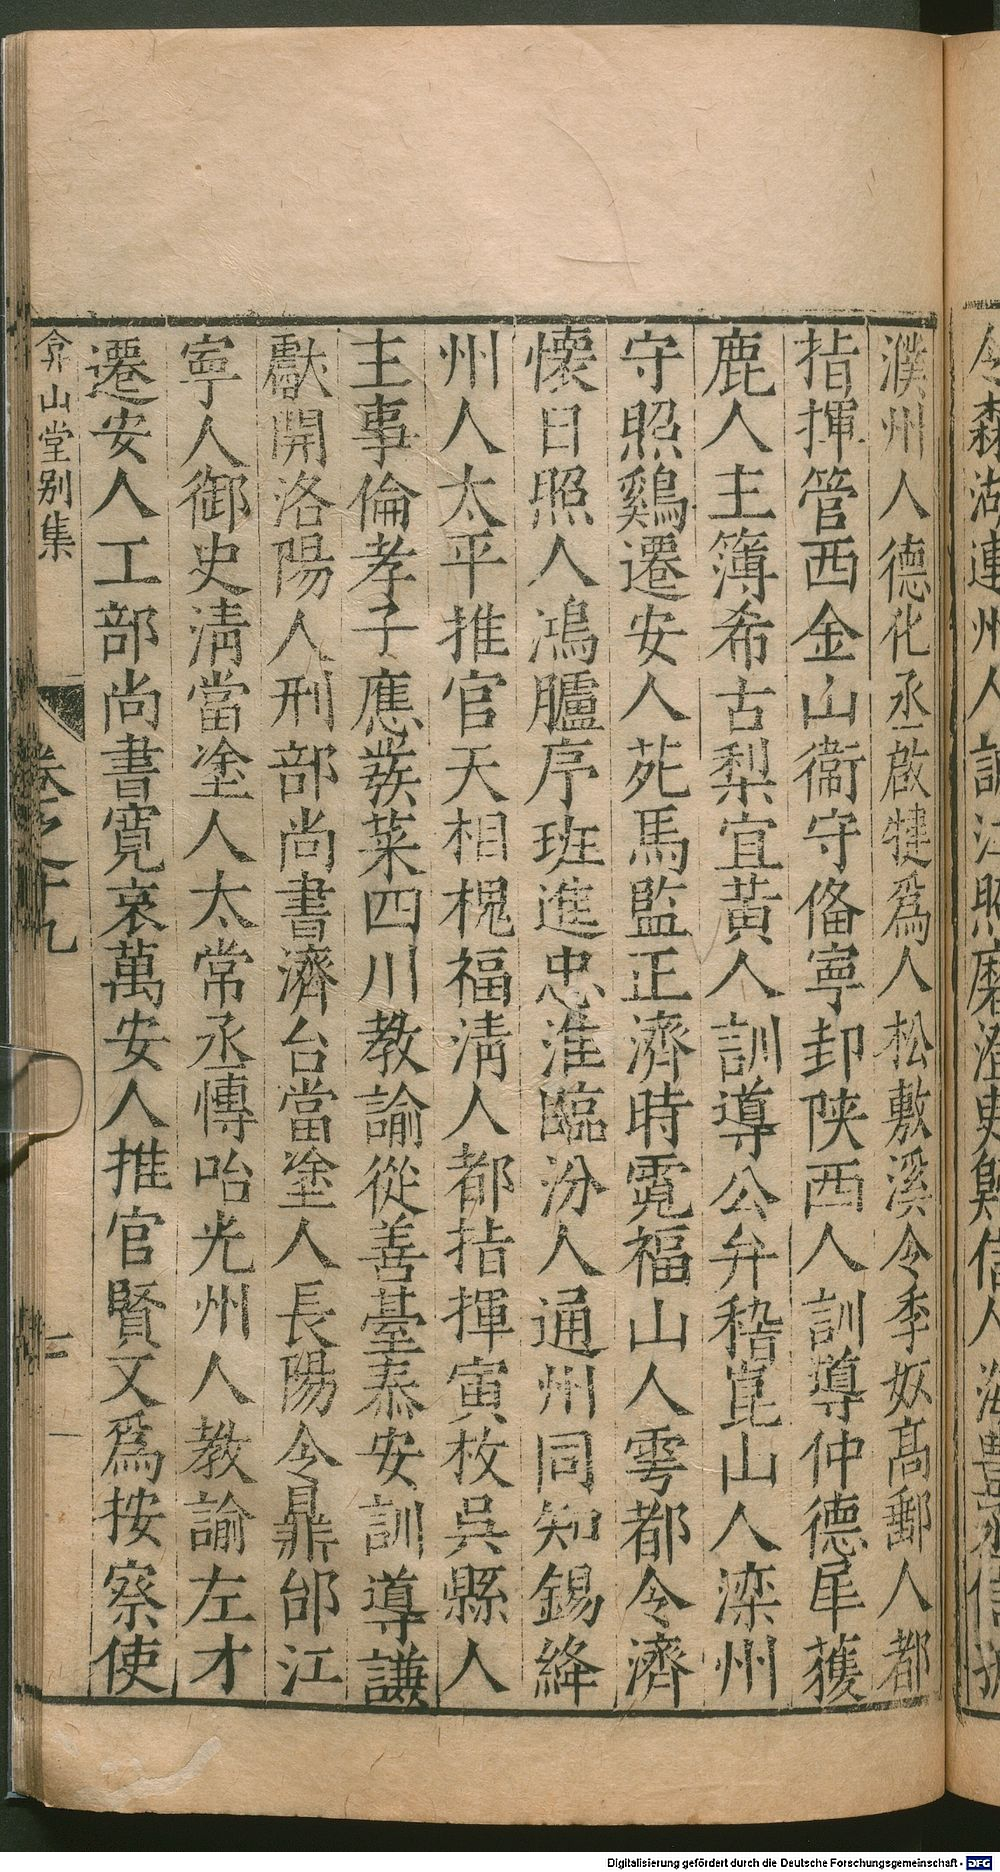 濮州人德化丞啟犍爲人松敷溪令季奴高郵人都
指揮管西金山衞守俻寜卦陕西人訓導仲德犀獲
鹿人主簿希古梨宜黃人訓導公弁稽崑山人滦州
守照鷄遷安人苑馬監正濟時霓福山人雩都令濟
懷日照人鴻臚序班進忠淮臨汾人通州同知錫絳
州人太平推官天相槐福清人都指揮寅枚吳縣人
主事倫孝子應蒺萊四川教諭從善臺泰安訓導謙
獻開洛陽人刑部尚書濟台當塗人長陽令鼎邰江
寜人御史清當塗人太常丞慱咍光州人教諭左才
遷安人工部尚書寛哀萬安人推官賢又爲按察使
弇山堂别集
卷之十九
二
Digitalisierung gefördert durch die Deutsche Forschungsgemeinschaft - DFG